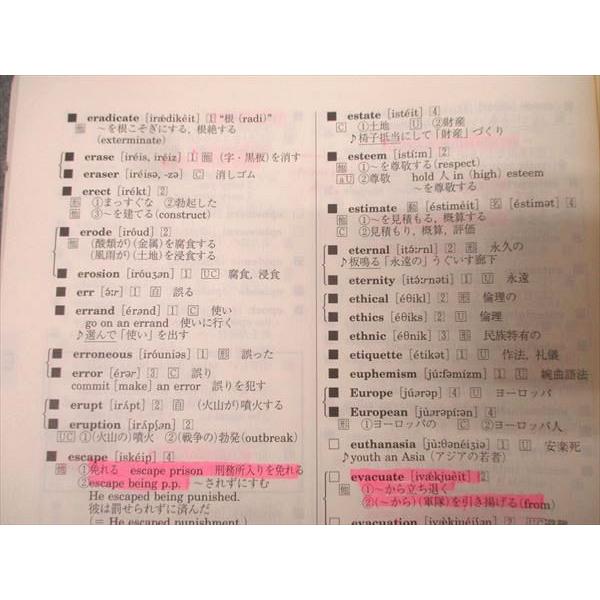 ■ eradicate [irǽdikèit] [1] "根 (radi)"
他 ～を根こそぎにする, 根絶する
(exterminate)
■ erase [iréis, iréiz] [1] 他 (字・黒板)を消す
■ eraser [iréisə, -zə] C 消しゴム
■ erect [irékt] [2]
形 ①まっすぐな ②勃起した
他 ③～を建てる (construct)
■ erode [iróud] [2]
他 (酸類が) (金属)を腐食する
(風雨が) (土地)を浸食する
■ erosion [iróuʒən] [1] UC 腐食, 浸食
■ err [ə́:r] [1] 自 誤る
■ errand [érənd] [1] C 使い
go on an errand 使いに行く
♪選んで「使い」を出す
■ erroneous [iróuniəs] [1] 形 誤った
■ error [érər] [3] C 誤り
commit [make] an error 誤りを犯す
■ erupt [irʌ́pt] [2] 自 (火山が)噴火する
■ eruption [irʌ́pʃən] [2]
UC ①(火山の)噴火 ②(戦争の)勃発(outbreak)
■ escape [iskéip] [4]
他 ①免れる escape prison 刑務所入りを免れる
②escape being p.p. ～されずにすむ
He escaped being punished.
彼は罰せられずに済んだ
(= He escaped punishment.)
■ estate [istéit] [4]
C ①土地 U ②財産
♪椅子抵当にして「財産」づくり
■ esteem [istí:m] [2]
他 ①～を尊敬する(respect)
aU ②尊敬 hold 人 in (high) esteem
～を尊敬する
■ estimate 動 [éstimèit] 名 [éstimət] [4]
他 ①～を見積もる, 概算する
C ②見積もり, 概算, 評価
■ eternal [itə́:rnl] [2] 形 永久の
♪板鳴る「永遠の」うぐいす廊下
■ eternity [itə́:rnəti] [1] U 永遠
■ ethical [éθikl] [2] 形 倫理の
■ ethics [éθiks] [2] U 倫理
■ ethnic [éθnik] [3] 形 民族特有の
■ etiquette [étikət] [1] U 作法, 礼儀
■ euphemism [jú:fəmìzm] [1] U 婉曲語法
■ Europe [júərəp] [4] U ヨーロッパ
■ European [jùərəpí:ən] [4]
形 ①ヨーロッパの C ②ヨーロッパ人
□ euthanasia [jù:θənéiʒiə] [1] U 安楽死
♪youth an Asia (アジアの若者)
□ evacuate [ivǽkjuèit] [2]
他 ①～から立ち退く
②(～から)(軍隊)を引き揚げる(from)
□ evacuation [ivækjuéiʃən] [2]